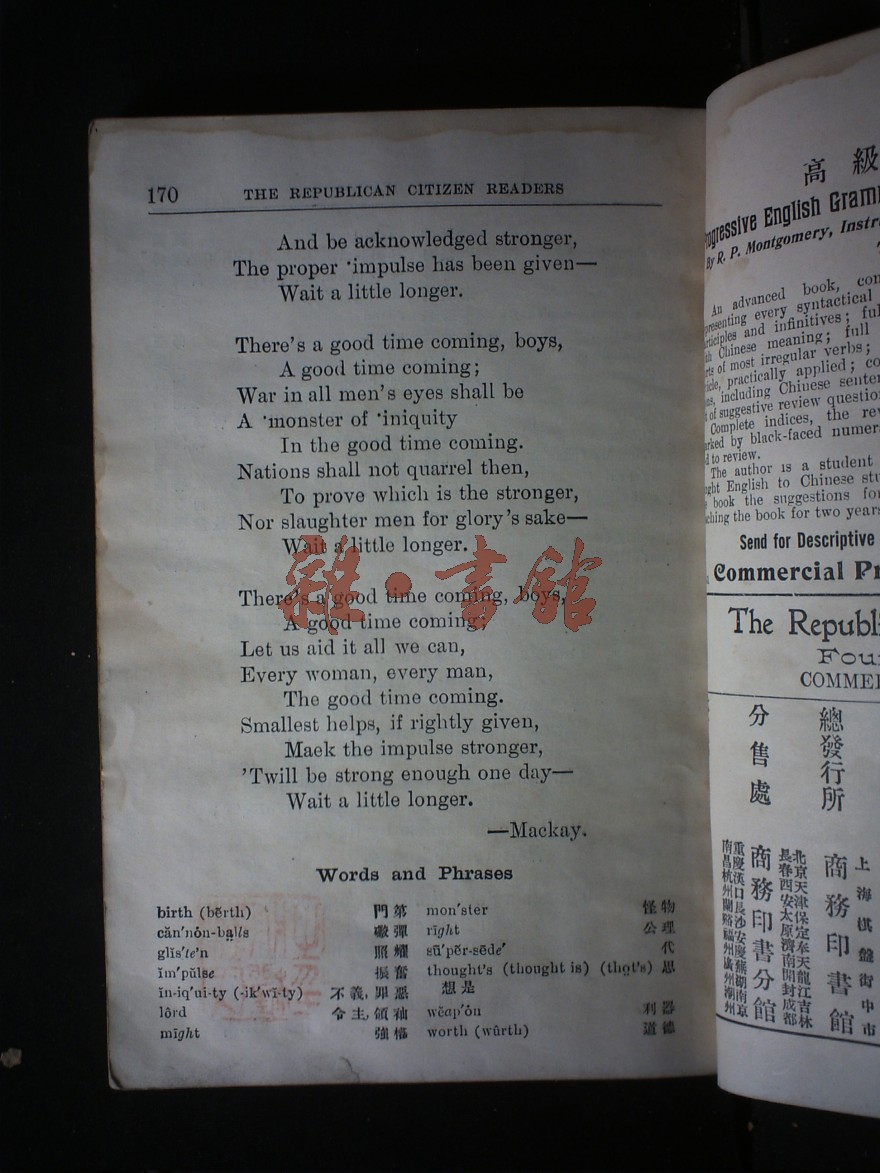 170 THE REPUBLICAN CITIZEN READERS
And be acknowledged stronger,
The proper 'impulse has been given—
Wait a little longer.
There's a good time coming, boys,
A good time coming;
War in all men's eyes shall be
A 'monster of 'iniquity
In the good time coming.
Nations shall not quarrel then,
To prove which is the stronger,
Nor slaughter men for glory's sake—
Wait a little longer.
There's a good time coming, boys,
A good time coming;
Let us aid it all we can,
Every woman, every man,
The good time coming.
Smallest helps, if rightly given,
Maek the impulse stronger,
'Twill be strong enough one day—
Wait a little longer.
—Mackay.
雜·書館
Words and Phrases
birth (bẽrth) 門第
căn'nȯn-ba̤lls 礮彈
glĭs'te'n 照耀
ĭm'pŭlse 振奮
ĭn-iq'ui-ty (-ik'wĭ-ty) 不義,罪惡
lôrd 令主,領袖
mīght 強權
mon'ster 怪物
rīght 公理
sū'pẽr-sēde' 代
thought's (thought is) (tho̤t's) 思
想是
wĕap'ȯn 利器
worth (wûrth) 道德
高級
ogressive English Gramm
By R. P. Montgomery, Instr
An advanced book, con
presenting every syntactical
articiples and infinitives; ful
sh Chinese meaning; full
rts of most irregular verbs;
icle, practically applied; co
ns, including Chinese senten
of suggestive review question
Complete indices, the rev
arked by black-faced numera
d to review.
The author is a student
ught English to Chinese stu
book the suggestions for
ching the book for two years
Send for Descriptive
Commercial Pr
The Republi
Fou
COMMER
總發行所
上海棋盤街中市
商務印書館
分售處
北京天津保定奉天龍江吉林
長春西安太原濟南開封成都
商務印書分館
重慶漢口長沙安慶蕪湖南京
南昌杭州蘭谿福州廣州潮州